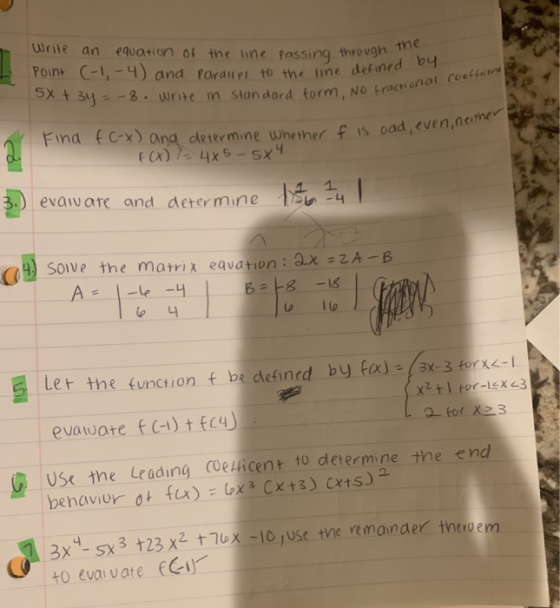 1. Write an equation of the line passing through the
point (-1, -4) and parallel to the line defined by
5x + 3y = -8. Write in standard form, NO fractional coefficients
2. Find f(-x) and determine whether f is odd, even, neither
f(x) = 4x⁵ - 5x⁴
3.) evaluate and determine
4.) Solve the matrix equation: 2x = 2A - B
A = | -6 -4 | B = | -8 -18 |
| 6 4 | | 6 16 |
5. Let the function f be defined by f(x) = { 3x-3 for x<-1
x²+1 for -1≤x<3
2 for x≥3
evaluate f(-1) + f(4)
6. Use the leading coefficent to determine the end
behavior of f(x) = 6x³ (x+3) (x+5)²
7. 3x⁴ - 5x³ + 23x² + 76x - 10, use the remainder theroem
to evaluate f(-1)